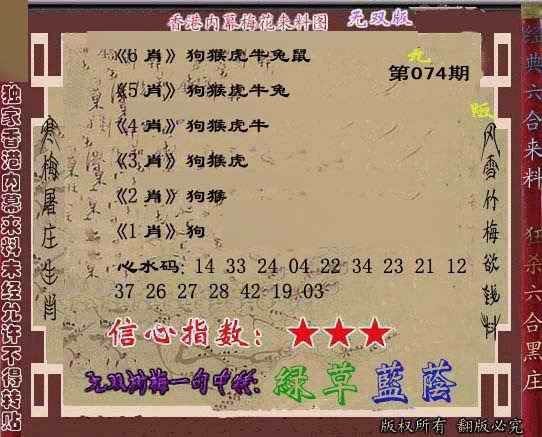 香港内幕梅花来料图 无双版
《6 肖》狗猴虎牛兔鼠
第074期
《5 肖》狗猴虎牛兔
《4 肖》狗猴虎牛
《3 肖》狗猴虎
《2 肖》狗猴
《1 肖》狗
心水码: 14 33 24 04 22 34 23 21 12
37 26 27 28 42 19 03
信心指数: ★★★
绿草蓝荫
版权所有 翻版必究
独家香港内幕来料未经允许不得转贴
寒梅屠庄生肖
风雪竹梅欲钱料
经典六合来料 狂杀六合黑庄